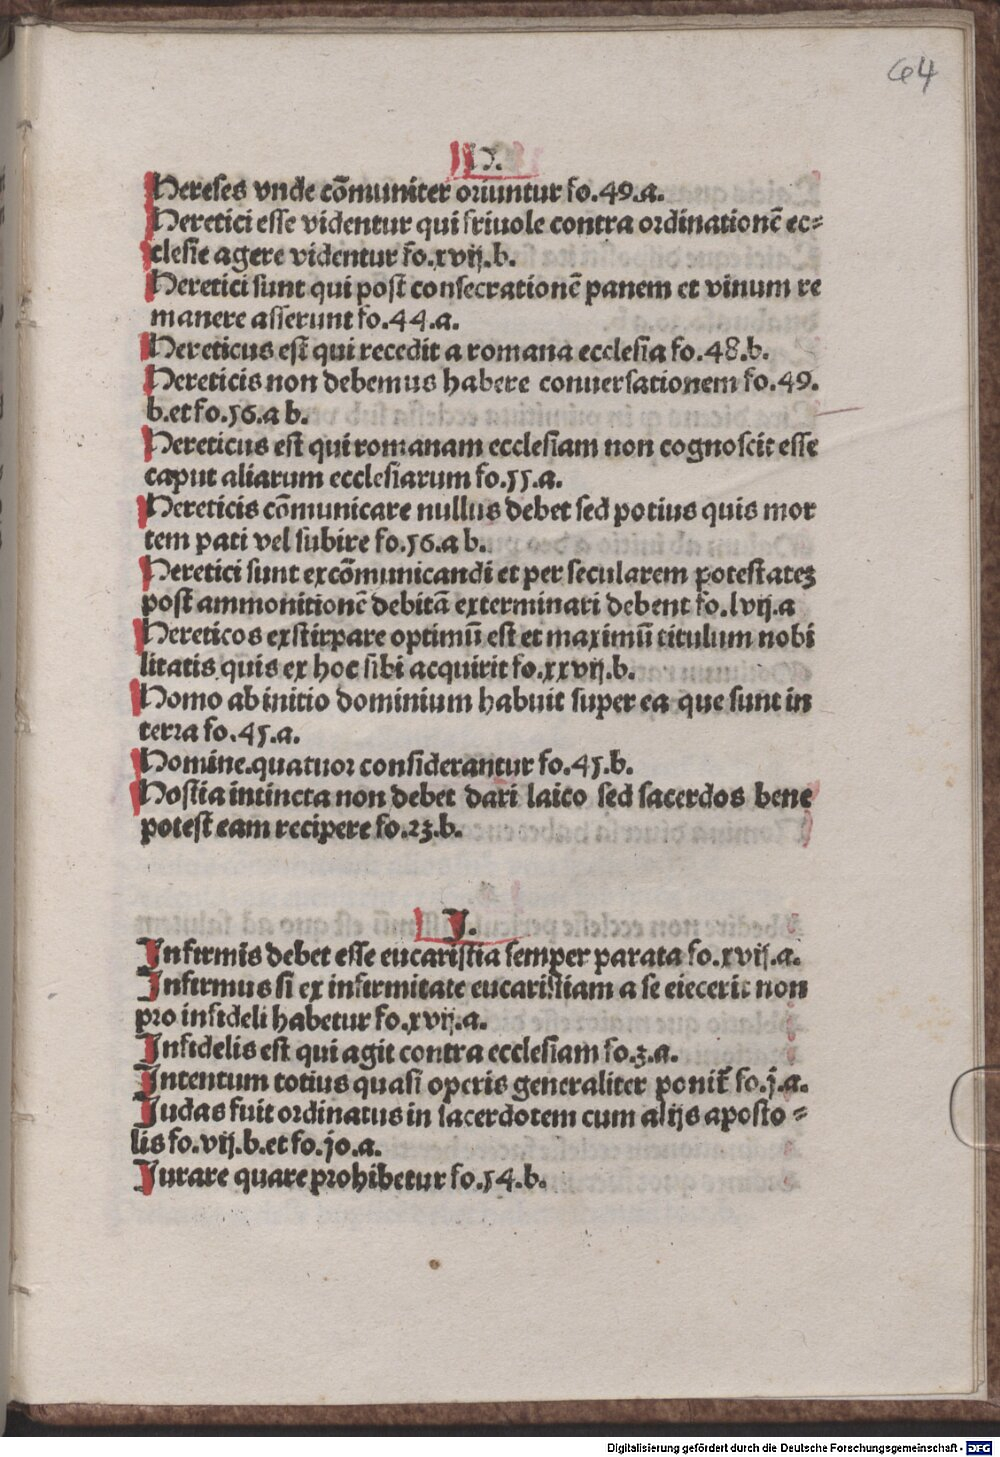 64
H.
Hereses vnde cōmuniter oriuntur fo.49.a.
Heretici esse videntur qui friuole contra ordinationē ec⸗
clesie agere videntur fo.xvij.b.
Heretici sunt qui post consecrationē panem et vinum re
manere asserunt fo.44.a.
Hereticus est qui recedit a romana ecclesia fo.48.b.
Hereticis non debemus habere conuersationem fo.49.
b.et fo.56.a b.
Hereticus est qui romanam ecclesiam non cognoscit esse
caput aliarum ecclesiarum fo.55.a.
Hereticis cōmunicare nullus debet sed potius quis mor
tem pati vel subire fo.56.a b.
Heretici sunt excōmunicandi et per secularem potestatez
post ammonitionē debitā exterminari debent fo.lvij.a
Hereticos exstirpare optimū est et maximū titulum nobi
litatis quis ex hoc sibi acquirit fo.xxvij.b.
Homo ab initio dominium habuit super ea que sunt in
terra fo.45.a.
Homine.quatuor considerantur fo.45.b.
Hostia intincta non debet dari laico sed sacerdos bene
potest eam recipere fo.23.b.
J.
Infirmis debet esse eucaristia semper parata fo.xvij.a.
Infirmus si ex infirmitate eucaristiam a se eiecerit non
pro infideli habetur fo.xvij.a.
Infidelis est qui agit contra ecclesiam fo.3.a.
Intentum totius quasi operis generaliter ponit̄ fo.j.a.
Judas fuit ordinatus in sacerdotem cum alijs aposto⸗
lis fo.vij.b.et fo.jo.a.
Jurare quare prohibetur fo.54.b.
Digitalisierung gefördert durch die Deutsche Forschungsgemeinschaft - DFG